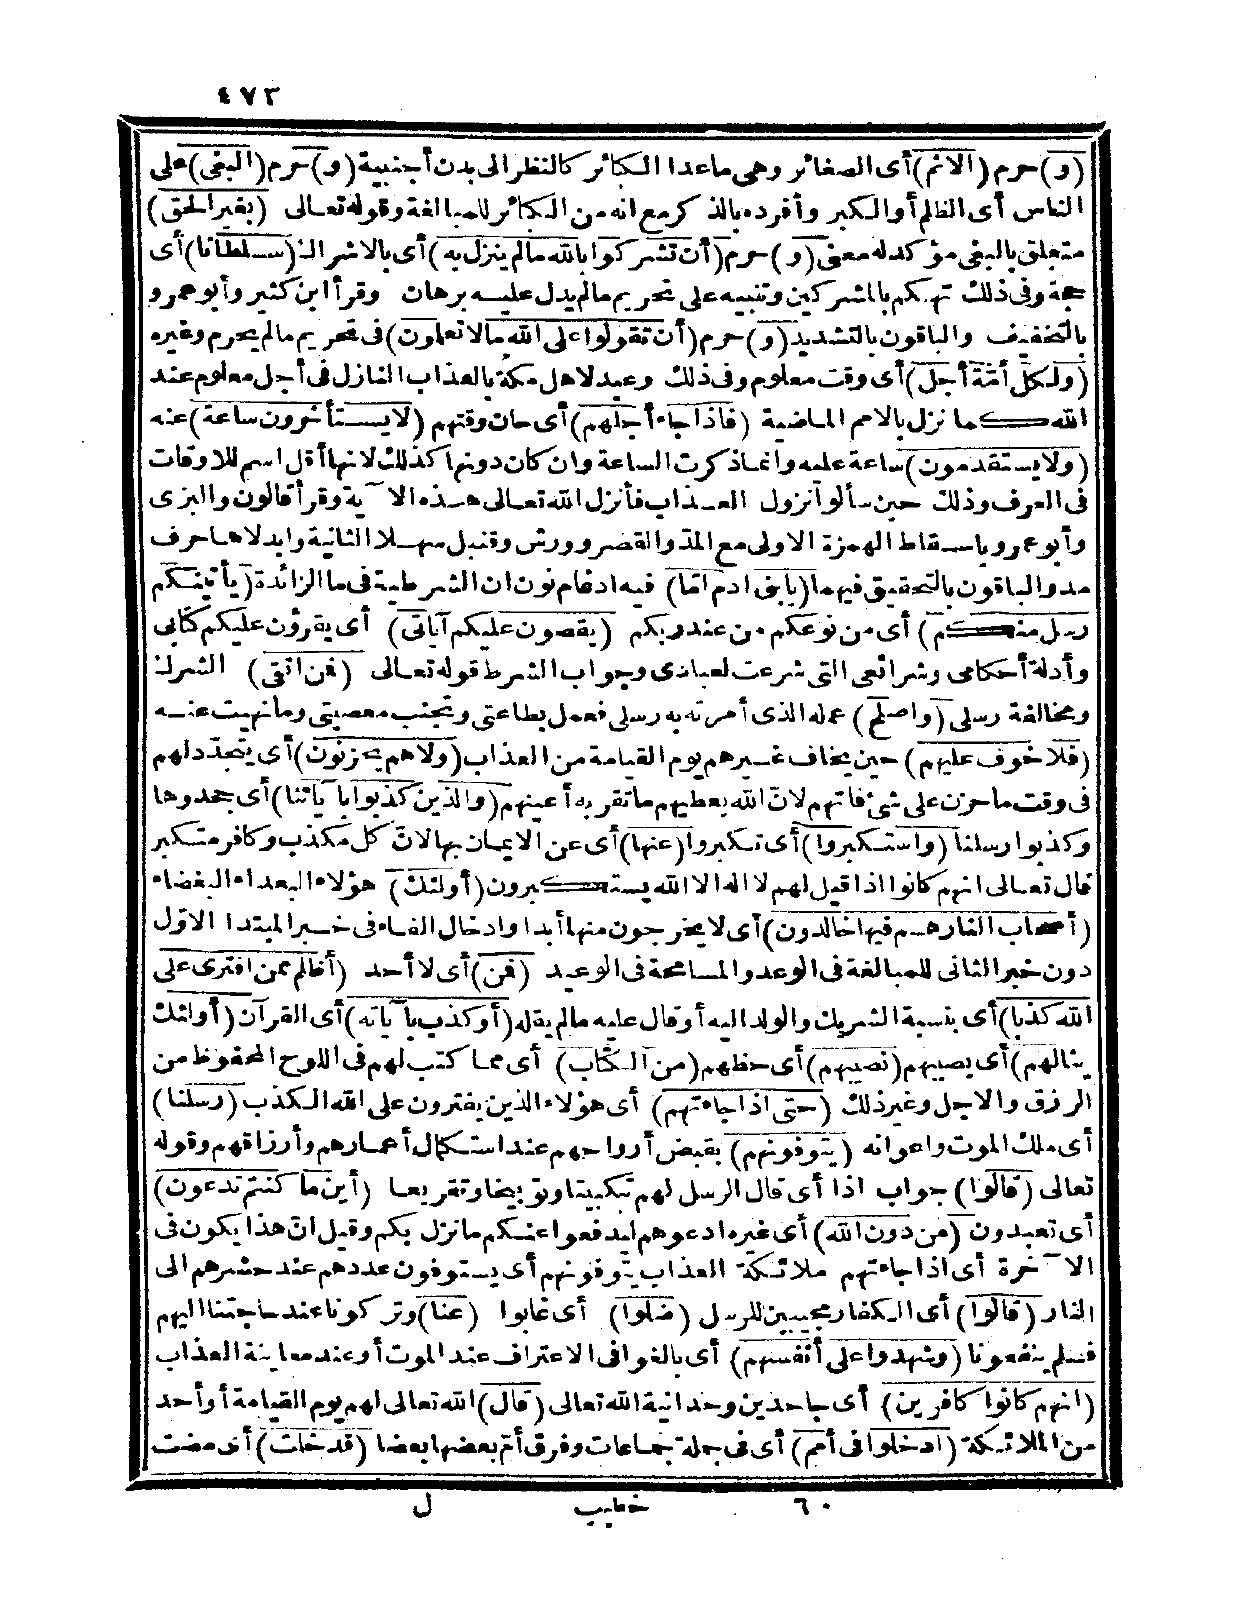 ٤٧٣
(و) حرم (الاثم) أى الصغائر وهى ماعدا الكبائر كالنظر الى بدن أجنبية (و) حرم (البغى) على
الناس أى الظلم أو الكبر وأفرده بالذكر مع انه من الكبائر للمبالغة وقوله تعالى (بغير الحق)
متعلق بالبغى مؤكد له معنى (و) حرم (أن تشركوا بالله مالم ينزل به) أى بالاشراك (سلطانا) أى
حجة وفى ذلك تهكم بالمشركين وتنبيه على تحريم مالم يدل عليه برهان وقرأ ابن كثير وأبو عمرو
بالتخفيف والباقون بالتشديد (و) حرم (أن تقولوا على الله مالا تعلمون) فى تحريم مالم يحرم وغيره
(ولكل أمّة أجل) أى وقت معلوم وفى ذلك وعيد لاهل مكة بالعذاب النازل فى أجل معلوم عند
الله كما نزل بالامم الماضية (فاذا جاء أجلهم) أى حان وقتهم (لا يستأخرون ساعة) عنه
(ولا يستقدمون) ساعة عليه وانما ذكرت الساعة وان كان دونها كذلك لانها أقل اسم للاوقات
فى العرف وذلك حين سألوا نزول العذاب فأنزل الله تعالى هذه الآية وقرأ قالون والبزى
وأبو عمرو باسقاط الهمزة الاولى مع المدّ والقصر وورش وقنبل سهلا الثانية وابدلاها حرف
مد والباقون بالتحقيق فيهما (يابنى ادم امّا) فيه ادغام نون ان الشرطية فى ما الزائدة (يأتينكم
رسل منكم) أى من نوعكم من عند ربكم (يقصون عليكم آياتى) أى يقرؤن عليكم كتابى
وأدلة أحكامى وشرائعى التى شرعت لعبادى وجواب الشرط قوله تعالى (فمن اتقى) الشرك
ومخالفة رسلى (واصلح) عمله الذى أمرته به رسلى فعمل بطاعتى وتجنب معصيتى وما نهيت عنه
(فلا خوف عليهم) حين يخاف غيرهم يوم القيامة من العذاب (ولا هم يحزنون) أى يتجدّد لهم
فى وقت ما حزن على شئ فاتهم لانّ الله يعطيهم ما تقر به أعينهم (والذين كذبوا بآياتنا) أى جحدوها
وكذبوا رسلنا (واستكبروا) أى تكبروا (عنها) أى عن الايمان بها لانّ كل مكذب وكافر متكبر
قال تعالى انهم كانوا اذا قيل لهم لا اله الا الله يستكبرون (أولئك) هؤلاء البعداء البغضاء
(أصحاب النار هم فيها خالدون) أى لا يخرجون منها أبدا وادخال الفاء فى خبر المبتدا الاوّل
دون خبر الثانى للمبالغة فى الوعد والمسامحة فى الوعيد (فمن) أى لا أحد (أظلم ممن افترى على
الله كذبا) أى بنسبة الشريك والولد اليه أو قال عليه مالم يقله (أو كذب بآياته) أى القرآن (أولئك
ينالهم) أى يصيبهم (نصيبهم) أى حظهم (من الكتاب) أى مما كتب لهم فى اللوح المحفوظ من
الرزق والاجل وغير ذلك (حتى اذا جاءتهم) أى هؤلاء الذين يفترون على الله الكذب (رسلنا)
أى ملك الموت واعوانه (يتوفونهم) بقبض أرواحهم عند استكمال أعمارهم وأرزاقهم وقوله
تعالى (قالوا) جواب اذا أى قال الرسل لهم تبكيتا وتوبيخا وتقريعا (أين ما كنتم تدعون)
أى تعبدون (من دون الله) أى غيره ادعوهم ليدفعوا عنكم ما نزل بكم وقيل انّ هذا يكون فى
الآخرة أى اذا جاءتهم ملائكة العذاب يتوفونهم أى يستوفون عددهم عند حشرهم الى
النار (قالوا) أى الكفار مجيبين للرسل (ضلوا) أى غابوا (عنا) وتركونا عند حاجتنا اليهم
فلم ينفعونا (وشهدوا على أنفسهم) أى بالغوا فى الاعتراف عند الموت أو عند معاينة العذاب
(انهم كانوا كافرين) أى جاحدين وحدانية الله تعالى (قال) الله تعالى لهم يوم القيامة أو أحد
من الملائكة (ادخلوا فى أمم) أى فى جملة جماعات وفرق أمّ بعضها بعضا (قد خلت) أى مضت
٦٠ خطيب ل